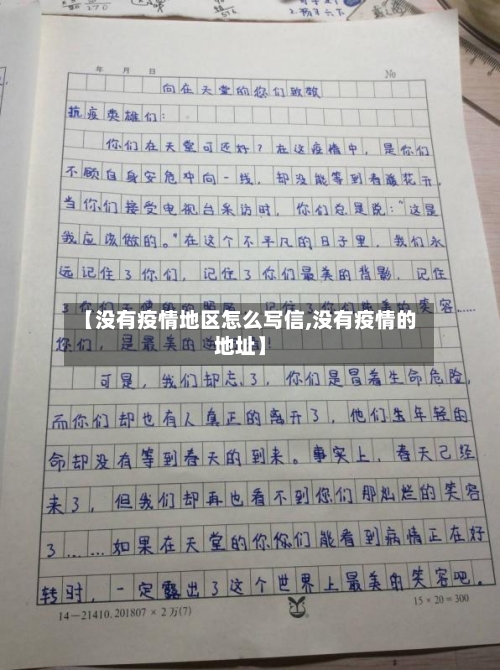 年 月 日
No
向在天堂的你们致敬
抗疫英雄们：
你们在天堂可还好？在这疫情中，是你们
不顾自身安危冲向一线，却没能等到春暖花开，
当你们接受电视台采访时，你们总是说：“这是
我应该做的。”在这个不平凡的日子里，我们永
远记住了你们，记住了你们最美的背影，记住
【没有疫情地区怎么写信,没有疫情的
地址】
你们，是最美的
可是，我们却忘了，你们是冒着生命危险，
而你们却也有人真正的离开了，他们年轻的
命却没有等到春天的到来。事实上，春天已经
来了，但我们却再也看不到你们那灿烂的笑容
了……如果在天堂的你你们能看到病情正在好
转时，一定露出了这个世界上最美的笑容吧。
14—21410.201807×2万(7)
15×20=300